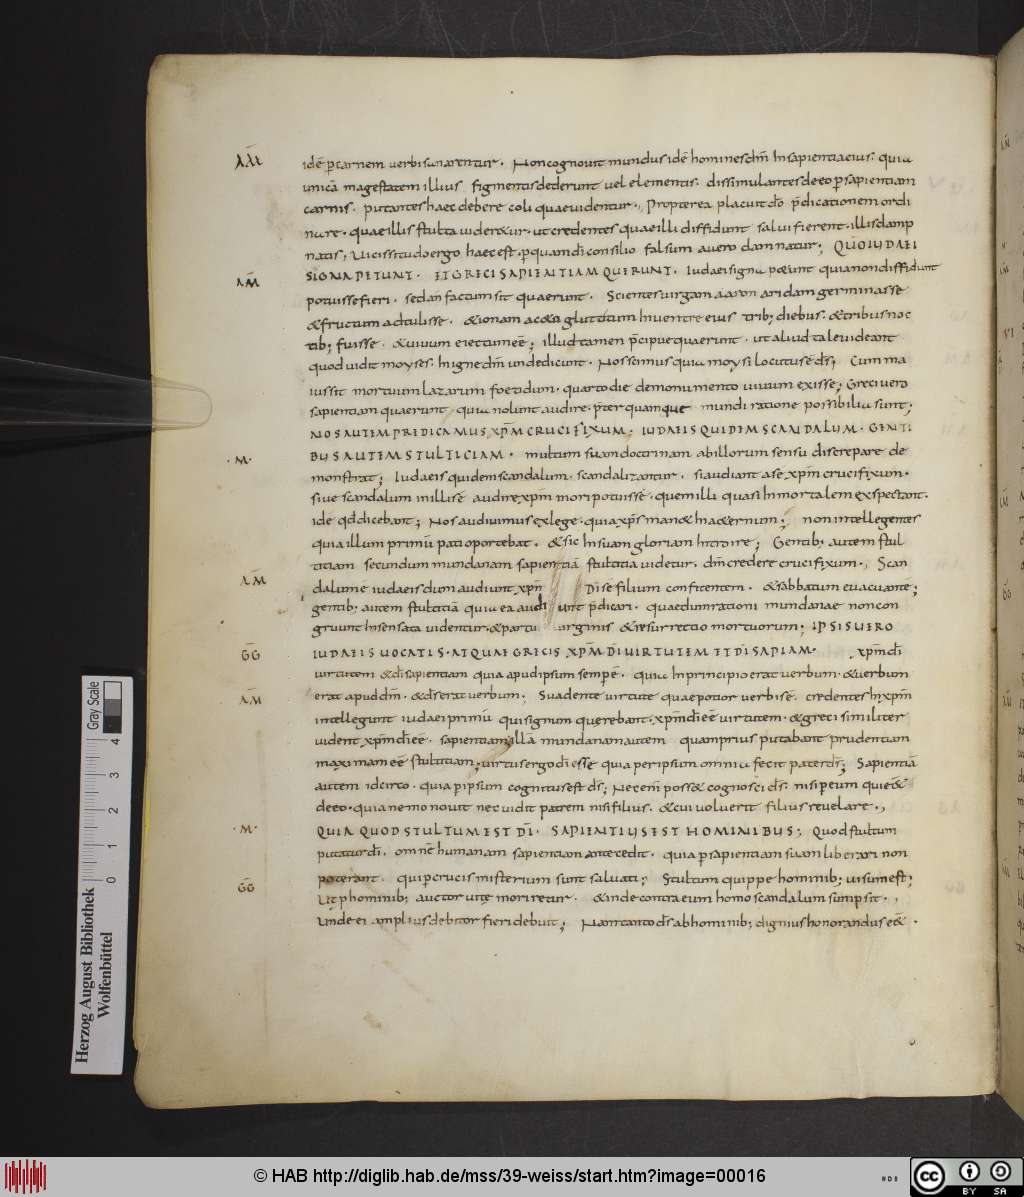 idē p carnem verbis unarentur. Non cognovit mundus idē homines dm̄ In sapientia eius. quia
unicā magestatem illius figmentis dederunt vel elementis. dissimulantes de eo p sapientiam
carnis. putantes haec debere coli quae videntur. Propterea placuit do p̄dicationem ordi
nare. quae illis stulta videretur. ut credentes quae illi diffidunt salvi fierent. illis damp
natis; Vicissitudo ergo haec est. p quam di consilio falsum a vero damnatur; QUO IUDAEI
SIGNA PETUNT. ET GRECI SAPIENTIAM QUERUNT. Iudaei signa petunt quia non diffidunt
potuisse fieri. sed an factum sit quaerunt. Scientes virgam aaron aridam germinasse
& fructum adtulisse. & ionam ac& a gluttitum In ventre eius trib; diebus. & tribus noc
tib; fuisse. & vivum eiectum eē; illud tamen p̄cipue quaerunt. ut aliud tale videant
quod vidit moyses. In igne dm̄ unde dicunt. Nos scimus quia moysi locutus e ds; Cum ma
iussit mortuum lazarum foetidum. quarto die de monumento vivum exisse; Greci vero
sapientiam quaerunt quia nolunt audire. p̄ter quam que mundi ratione possibilia sunt;
NOS AUTEM PREDICAMUS XPM̄ CRUCIFIXUM. IUDAEIS QUIDEM SCANDALUM. GENTI
BUS AUTEM STULTICIAM. multum suam doctrinam ab illorum sensu discrepare de
monstrat; Iudaeis quidem scandalum. scandalizantur. si audiant a se xpm̄ crucifixum.
sive scandalum in illis ē audire xpm̄ mori potuisse. quem illi quasi Inmortalem exspectant.
ide qd dicebant; Nos audivimus ex lege. quia xps̄ man& In a&ernum; non intellegentes
quia illum primū pati oportebat. & sic In suam gloriam Introire; Gentib; autem stul
titiam secundum mundanam sapientiā stultitia videtur. dm̄ credere crucifixum. Scan
dalum ē iudaeis dum audiunt xpm̄ Di se filium confitentem. & sabbatum evacuantē;
gentib; autem stultitiā quia ea audi unt p̄dicari. quaedam rationi mundanae non con
gruunt Insensata videntur. & partu virginis & resurrectio mortuorum; IPSIS VERO
IUDAEIS UOCATIS. ATQUAE GRECIS XPM̄ DI UIRTUTEM ET DI SAPIAM. xpm̄ di
virtutem & di sapientiam quia apud ipsum semp ē. quia In principio erat verbum. & verbum
erat apud dm̄. & ds erat verbum. Suadente virtute quae potior verbis ē. credentes In xpm̄
intellegunt iudaei primū qui signum querebant. xpm̄ di eē virtutem. & greci similiter
vident xpm̄ di eē. sapientiam illā mundanam autem quam prius putabant prudentiam
maximam eē stultitiam; virtus ergo di esse quia per ipsum omnia fecit pater ds; Sapientiā
autem idcirco. quia p ipsum cognitus est ds; Nec enī poss& cognosci ds. nisi p eum qui e&
de eo. quia nemo novit nec vidit patrem nisi filius. & cui voluerit filius revelare.,
QUIA QUOD STULTUM EST DI. SAPIENTIUS EST HOMINIBUS; Quod stultum
putatur di. omnē humanam sapientiam antecedit. quia p sapientiam suam liberari non
poterant. qui p crucis misterium sunt salvati; Stultum quippe hominib; visum est;
Ut p hominib; auctor vitę moriretur. & inde contra eum homo scandalum sumpsit.,
Unde ei amplius debitor fieri debuit; Nam tanto ds ab hominib; dignius honorandus e&.
·M·
AM
GG
AM
·M·
GG
Herzog August Bibliothek
Wolfenbüttel
Gray Scale
0 1 2 3 4
© HAB http://diglib.hab.de/mss/39-weiss/start.htm?image=00016
CC BY SA